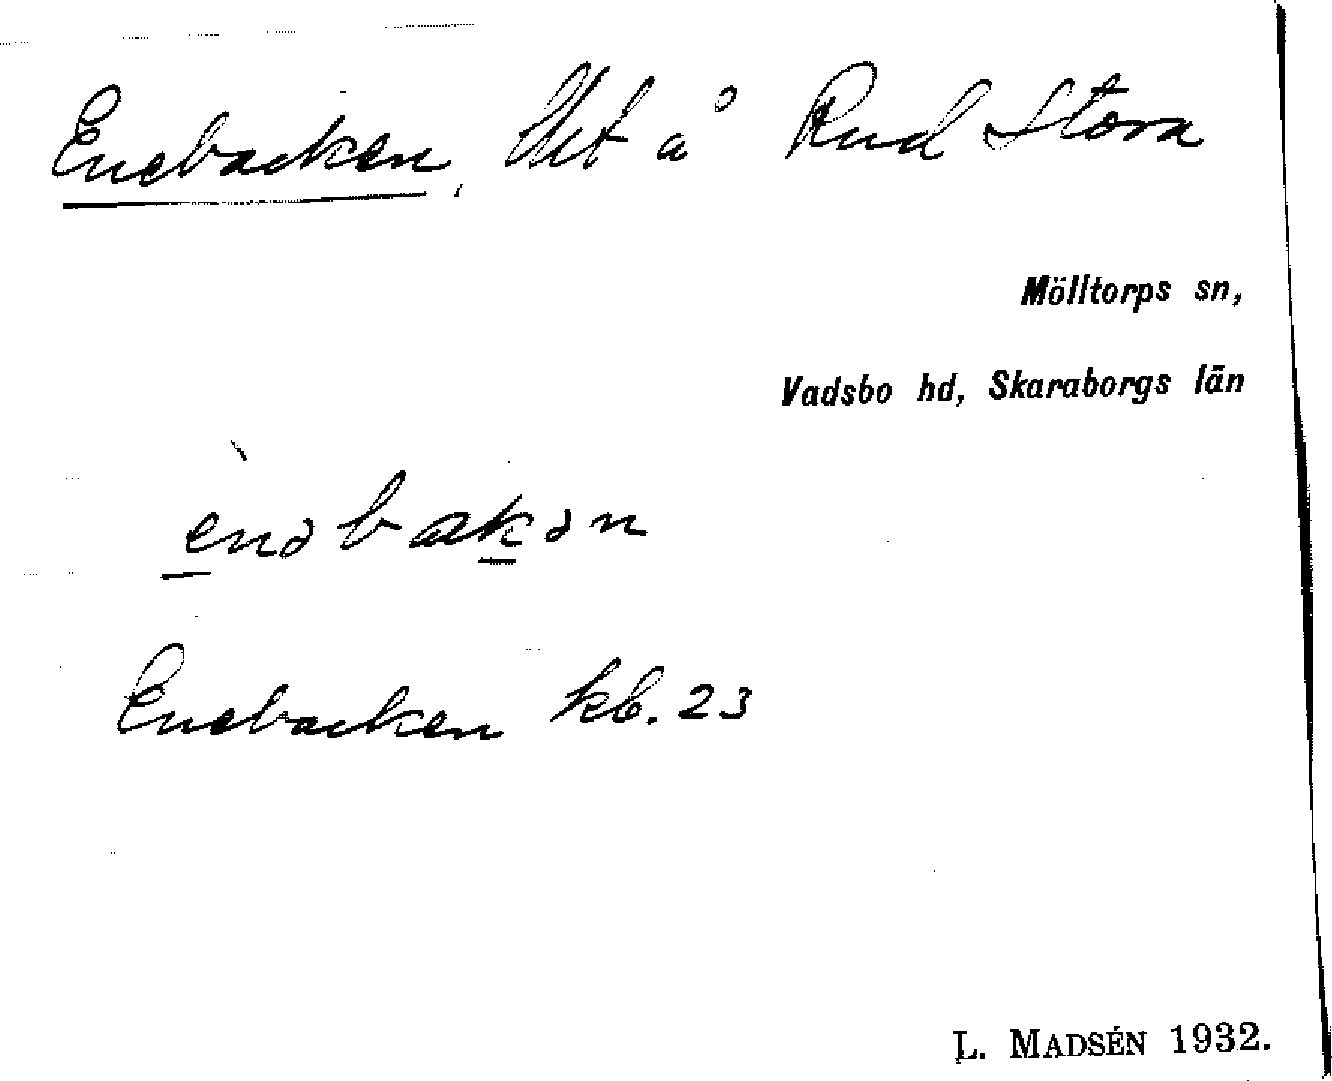 Enebacken, lht å Rud Stora
Mölltorps sn,
Vadsbo hd, Skaraborgs län
ènəbakən
Enebacken kb. 23
L. MADSÉN 1932.